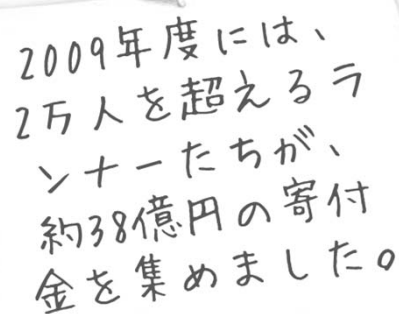 2009年度には、
2万人を超えるラ
ンナーたちが、
約38億円の寄付
金を集めました。